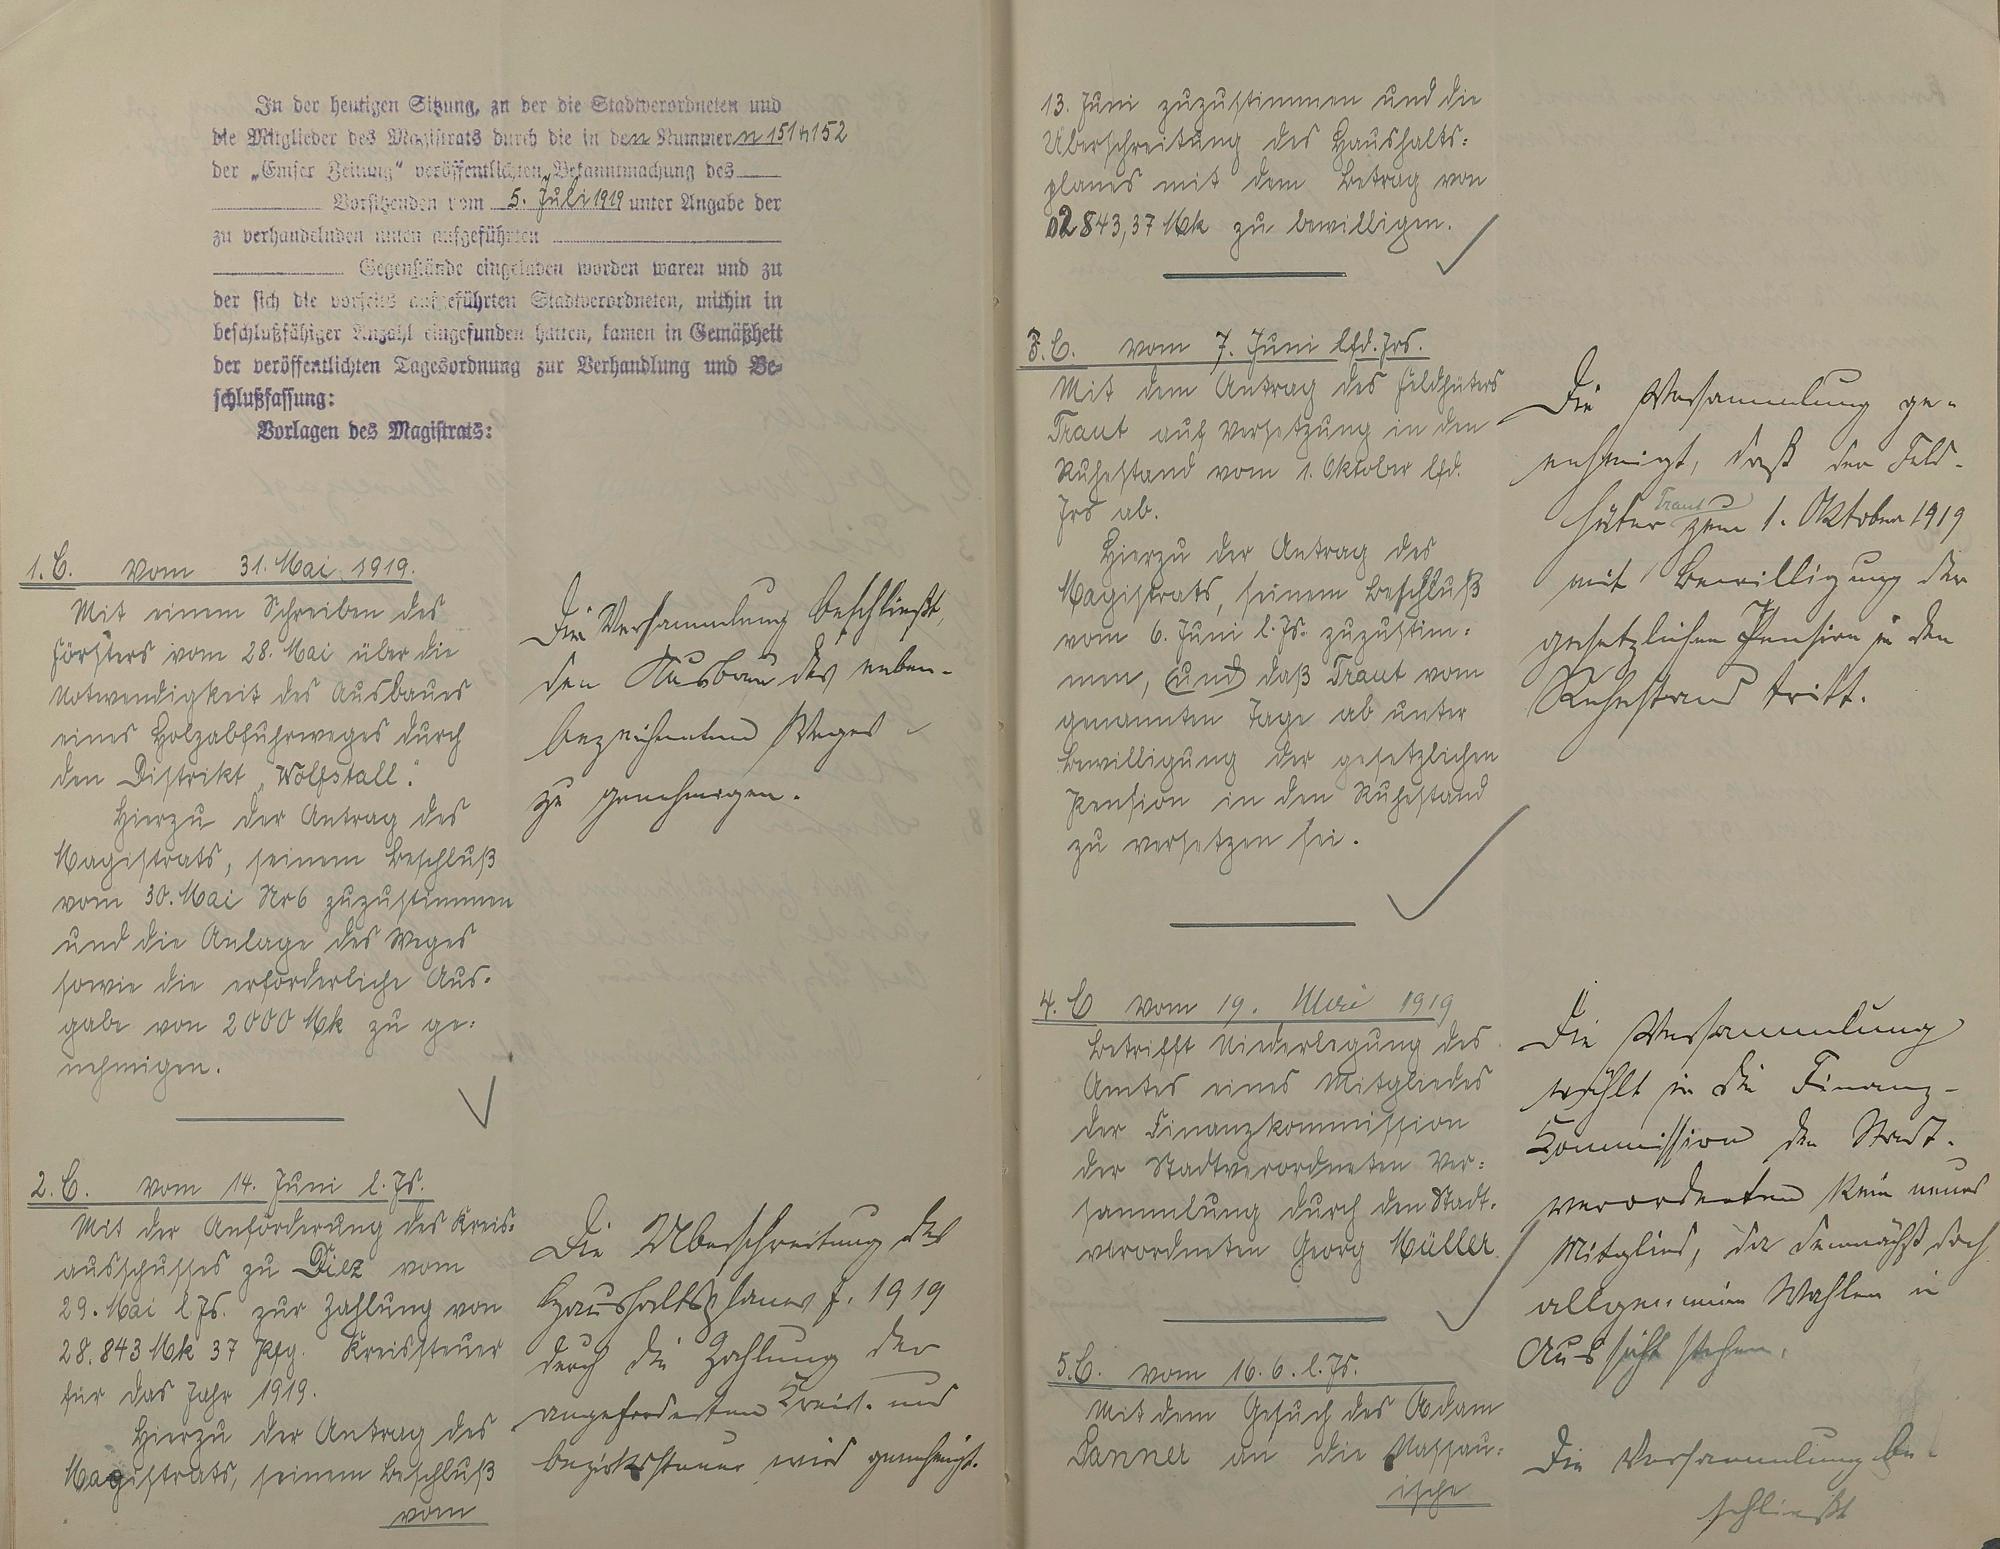 In der heutigen Sitzung, zu der die Stadtverordneten und
die Mitglieder des Magistrats durch die in den Nummern 151 u 152
der „Emser Zeitung“ veröffentlichten Bekanntmachung des
Vorsitzenden vom 5. Juli 1919 unter Angabe der
zu verhandelnden unten aufgeführten
Gegenstände eingeladen worden waren und zu
der sich die vorseits aufgeführten Stadtverordneten, mithin in
beschlußfähiger Anzahl eingefunden hatten, kamen in Gemäßheit
der veröffentlichten Tagesordnung zur Verhandlung und Be-
schlußfassung:
Vorlagen des Magistrats:
1. C. vom 31. Mai 1919.
Mit einem Schreiben des
Försters vom 28. Mai über die
Notwendigkeit des Ausbaues
eines Holzabfuhrweges durch
den Distrikt „Wolfstall“.
Hierzu der Antrag des
Magistrats, seinem Beschluß
vom 30. Mai Nr 6 zuzustimmen
und die Anlage des Weges
sowie die erforderliche Aus-
gabe von 2000 Mk zu ge=
nehmigen.
Die Versammlung beschließt,
den Ausbau des neben-
bezeichneten Weges
zu genehmigen.
2. C. vom 14. Juni l. Js.
Mit der Anforderung des Kreis=
ausschusses zu Diez vom
29. Mai l Js. zur Zahlung von
28.843 Mk 37 Pfg. Kreissteuer
für das Jahr 1919.
Hierzu der Antrag des
Magistrats, seinem Beschluß
vom
Die Überschreitung des
Haushaltsplanes f. 1919
durch die Zahlung der
angeforderten Kreis- und
Bezirkssteuer wird genehmigt.
13. Juni zuzustimmen und die
Überschreitung des Haushalts=
planes mit dem Betrag von
2843,37 Mk zu bewilligen.
3. C. vom 7. Juni lfd. Jrs.
Mit dem Antrag des Feldhüters
Traut auf Versetzung in den
Ruhestand vom 1. Oktober lfd.
Jrs ab.
Hierzu der Antrag des
Magistrats, seinem Beschluß
vom 6. Juni l. Js. zuzustim=
men, (und) daß Traut vom
genannten Tage ab unter
Bewilligung der gesetzlichen
Pension in den Ruhestand
zu versetzen sei.
Die Versammlung ge-
nehmigt, daß der Feld-
hüter Traut zum 1. Oktober 1919
mit Bewilligung der
gesetzlichen Pension in den
Ruhestand tritt.
4. C vom 19. Mai 1919
Betrifft Niederlegung des
Amtes eines Mitgliedes
der Finanzkommission
der Stadtverordneten Ver=
sammlung durch den Stadt=
verordneten Georg Müller
Die Versammlung
wählt in die Finanz-
Kommission der Stadt-
verordneten kein neues
Mitglied, da demnächst doch
allgemeine Wahlen in
Aussicht stehen.
5. C. vom 16. 6. l. Js.
Mit dem Gesuch des Adam
Sanner an die Nassau=
ische
Die Versammlung be-
schließt